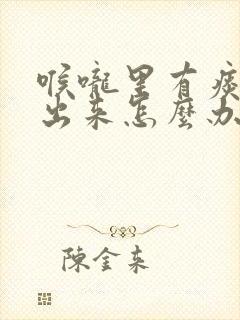 喉嚨里有痰
出来怎麼办
陳金来